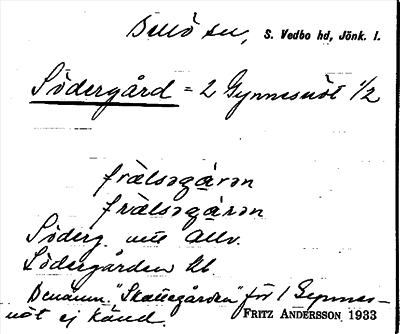 Bellö sn, S. Vedbo hd, Jönk. l.
Södergård = 2 Gynnesnöt 1/2
frälsəgạ̈rən
frälsəgạ̈rən
Söderg. utt Allv.
Södergården kb.
Benämn. "Skattegården" för 1 Gynnes-
nöt ej känd.
FRITZ ANDERSSON 1933